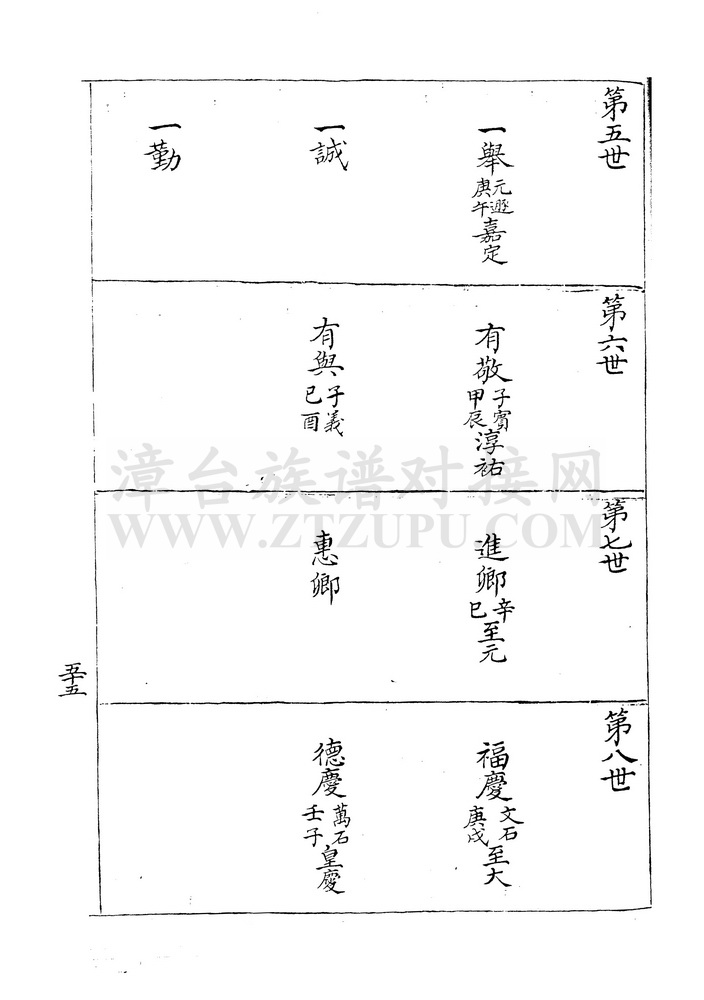 第五世
一舉 元遜 庚午 嘉定
一誠
一勤
第六世
有敬 子賓 甲辰 淳祐
有與 子義 已酉
第七世
進卿 辛已 至元
惠卿
第八世
福慶 文石 庚戌 至大
德慶 萬石 壬子 皇慶
五十五
漳台族谱对接网
WWW.ZTZUPU.COM